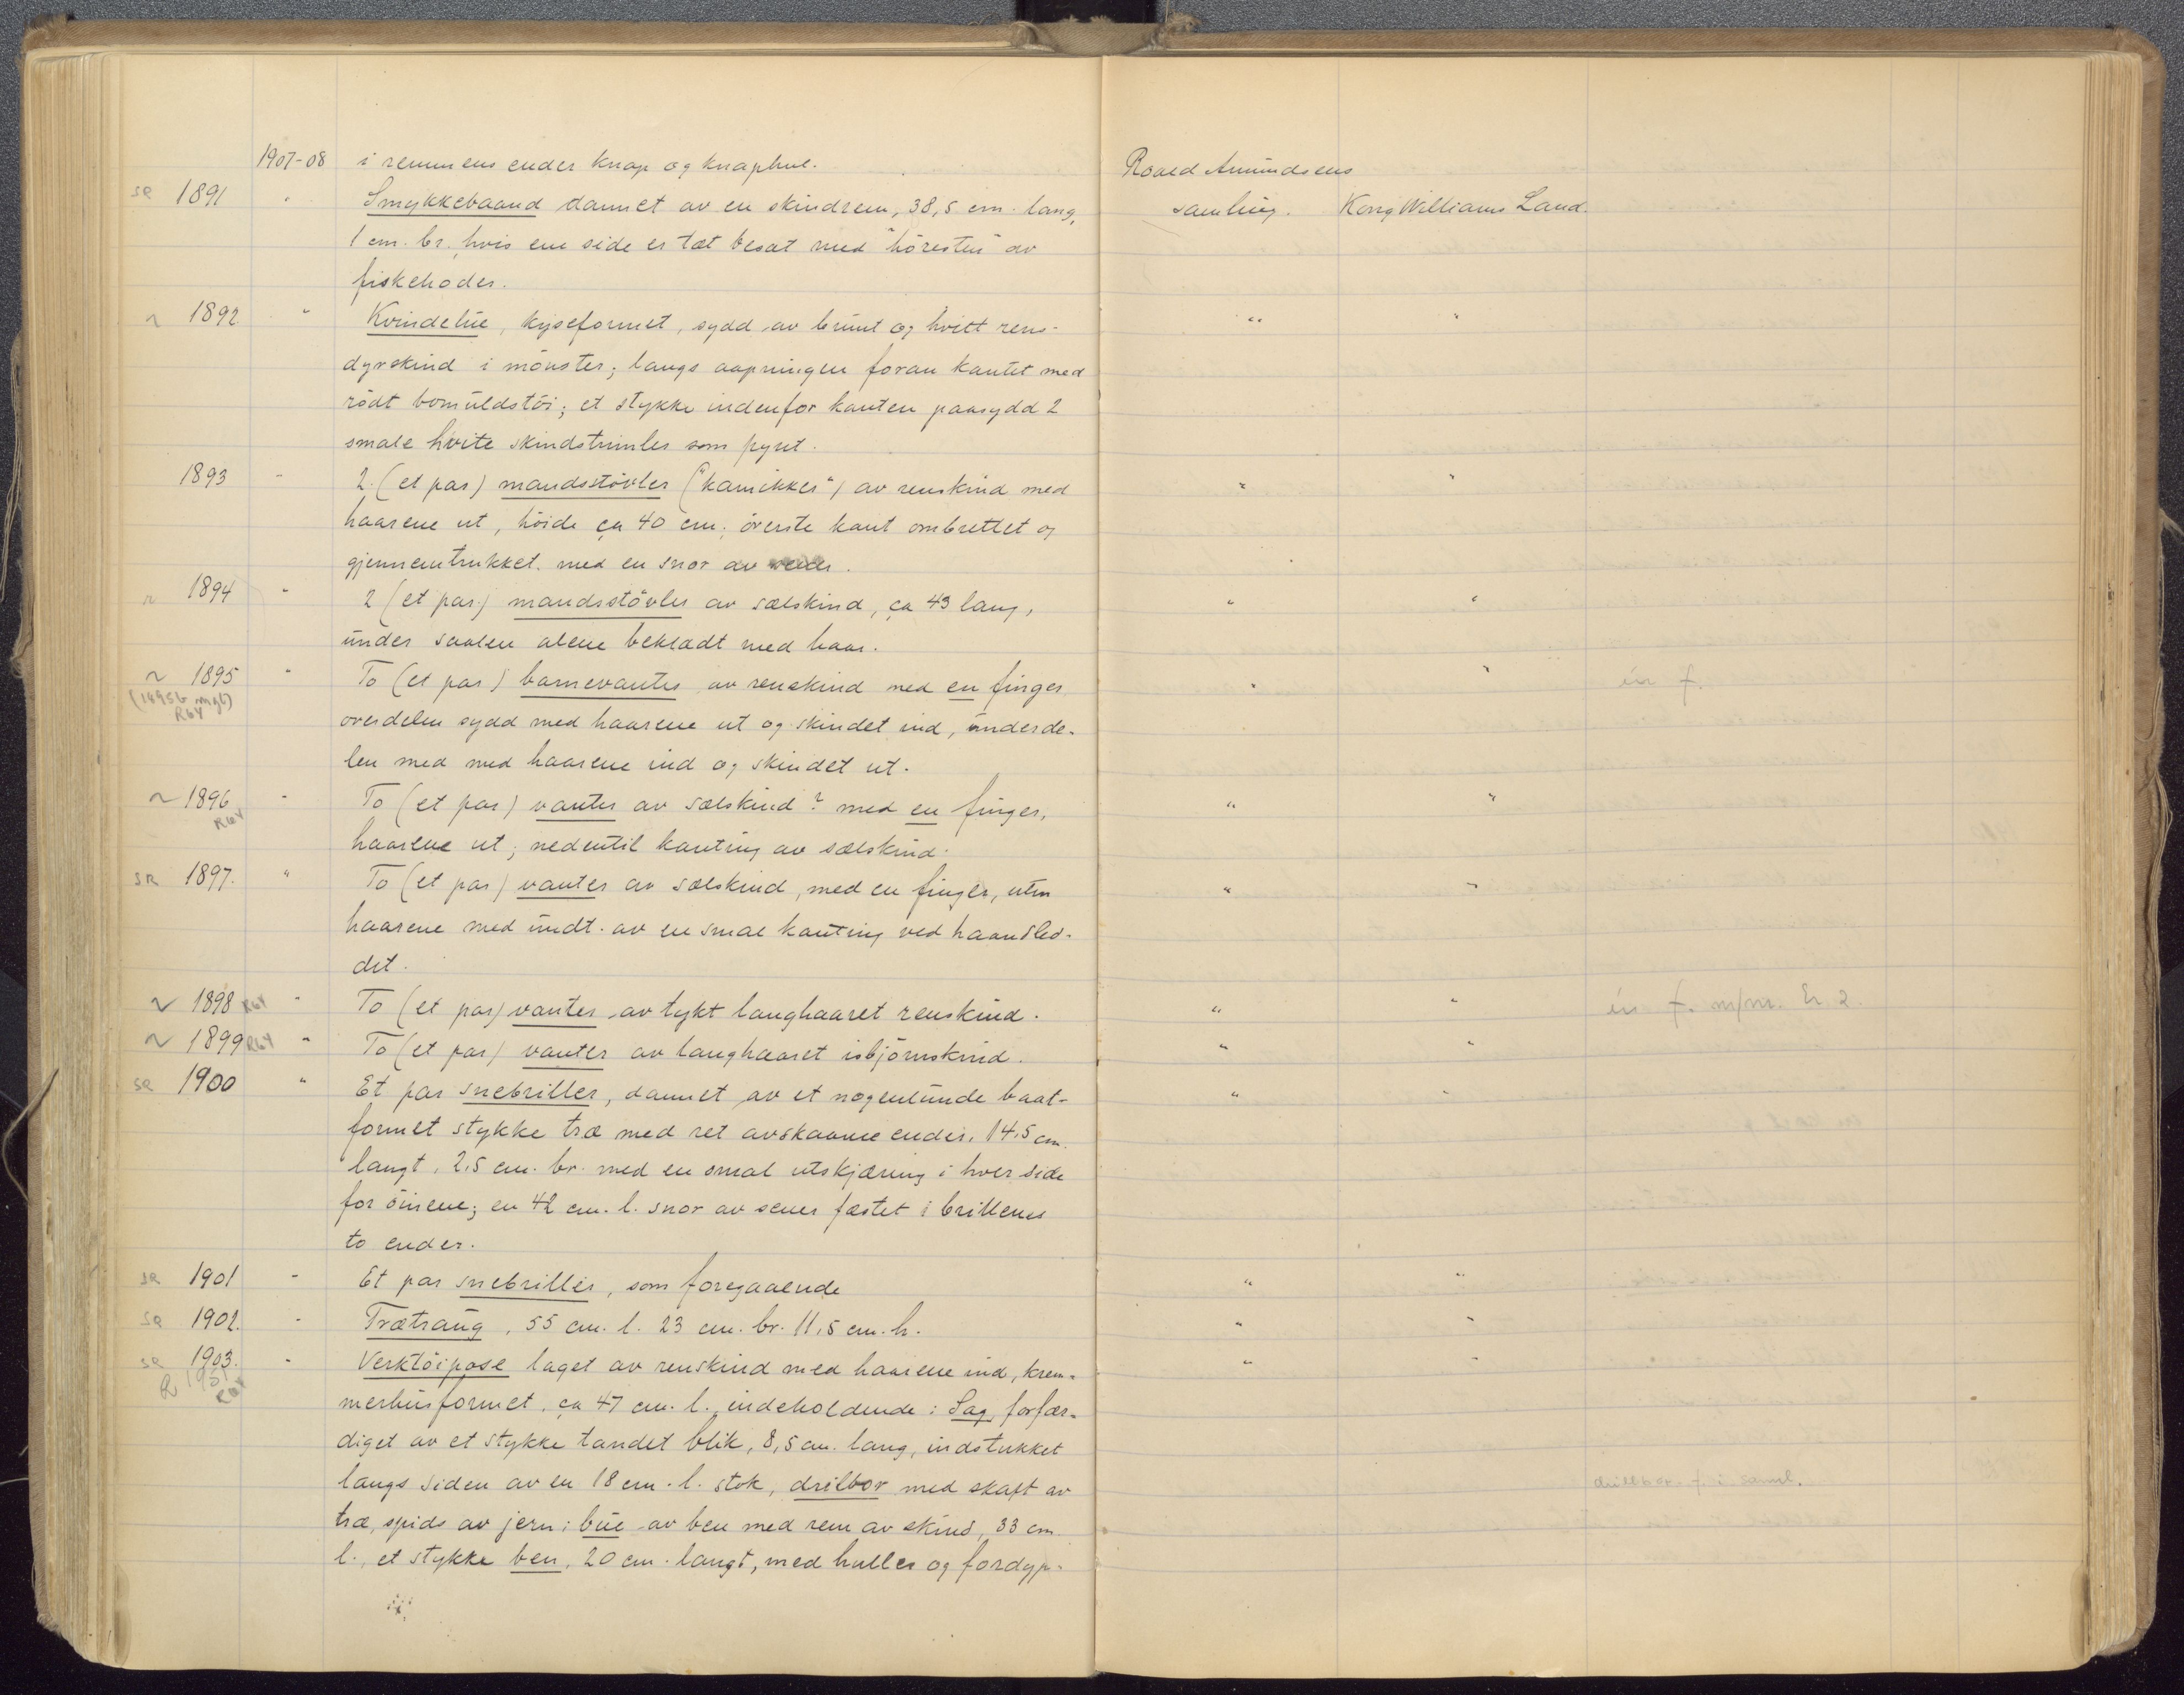 1907-08 i remmens ender knap og knaphul. Roald Amundsens
SR 1891 " Smykkebaand dannet av en skindrem, 38,5 cm. lang, samling. Kong Williams Land.
1 cm. br., hvis ene side er tæt besat med "höresten" av
fiskehoder.
1892 " Kvindelue, kyseformet, sydd av brunt og hvitt rens- " "
dyrskind i mönster; langs aapningen foran kantet med
rödt bomuldstöi; et stykke indenfor kanten paasydd 2
smale hvite skindstrimler som pynt.
1893 " 2 (et par) mandsstövler ("kamikker") av renskind med " "
haarene ut, höide ca 40 cm; överste kant ombrettet og
gjennemtrukket med en snor av
1894 " 2 (et par) mandsstövler av sælskind, ca 43 lang, " "
under saalen alene beklædt med haar.
~ 1895 " To (et par) barnevanter av renskind med en finger " " én f.
(1895b mgl)
R64
overdelen sydd med haarene ut og skindet ind, underde-
len med med haarene ind og skindet ut.
~ 1896 " To (et par) vanter av sælskind? med en finger, " "
R64
haarene ut; nedentil kanting av sælskind.
SR 1897. " To (et par) vanter av sælskind, med en finger, uten " "
haarene med undt. av en smal kanting ved haandled-
det.
~ 1898 R64 " To (et par) vanter av tykt langhaaret renskind. " " én f. m/nr. Er 2.
~ 1899 R64 " To (et par) vanter av langhaaret isbjörnskind. " "
SR 1900 " Et par snebriller, dannet av et nogenlunde baat- " "
formet stykke træ med ret avskaarne ender, 14,5 cm.
langt, 2,5 cm. br. med en smal utskjæring i hver side
for öinene; en 42 cm. l. snor av sener fæstet i brillenes
to ender.
SR 1901 " Et par snebriller, som foregaaende " "
SR 1902. " Trætraug, 55 cm. l. 23 cm. br. 11,5 cm. h. " "
SR 1903. " Verktöipose laget av renskind med haarene ind, kræm- " "
R 1951
R64
merhusformet, ca 47 cm. l., indeholdende: Sag, forfær-
diget av et stykke tandet blik, 8,5 cm. lang, indstukket
langs siden av en 18 cm. l. stok, drilbor med skaft av drillbor f. i saml.
træ, spids av jern; bue av ben med rem av skind, 33 cm
l., et stykke ben, 20 cm. langt, med huller og fordyp-